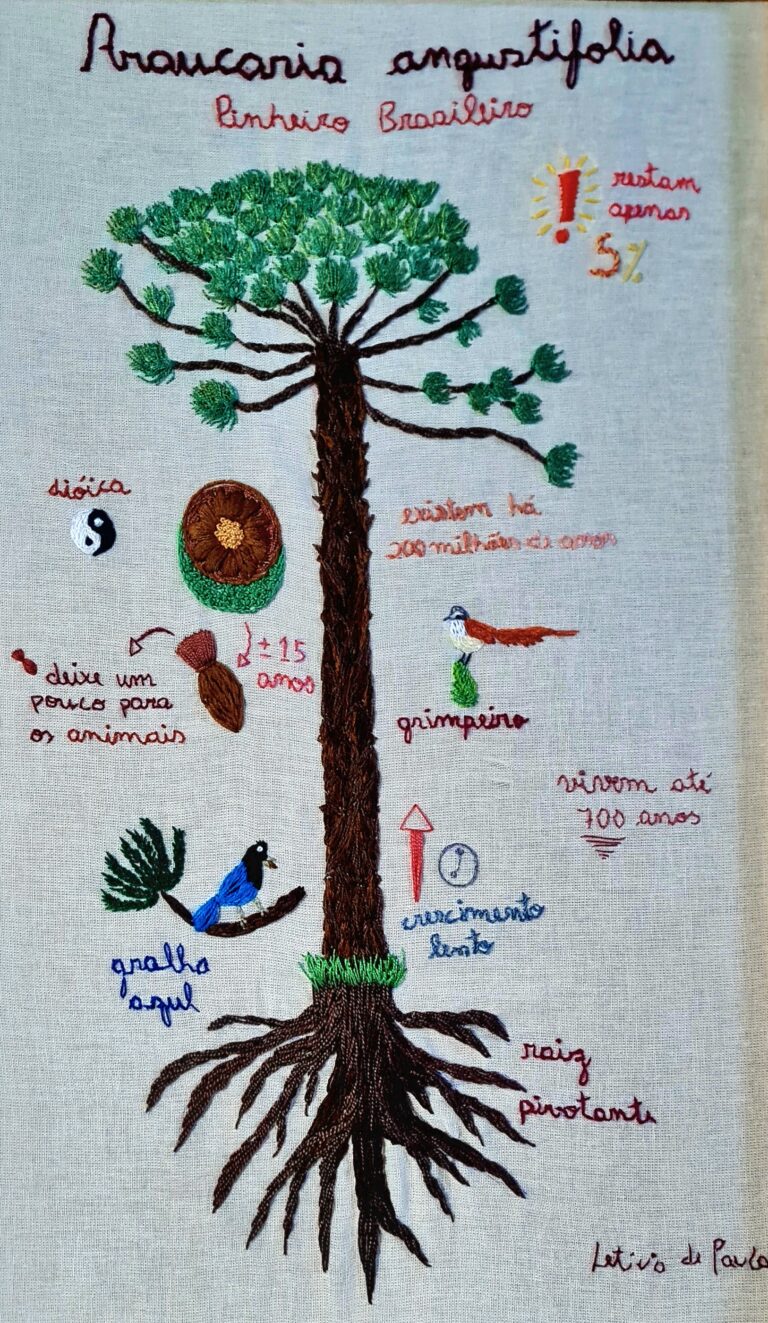 Araucaria angustifolia
Pinheiro Brasileiro
restam
apenas
5%
dióica
existem há
200 milhões de anos
± 15
anos
deixe um
pouco para
os animais
grimpeiro
vivem até
700 anos
crescimento
lento
gralha
azul
raiz
pivotante
Letivia de Paula